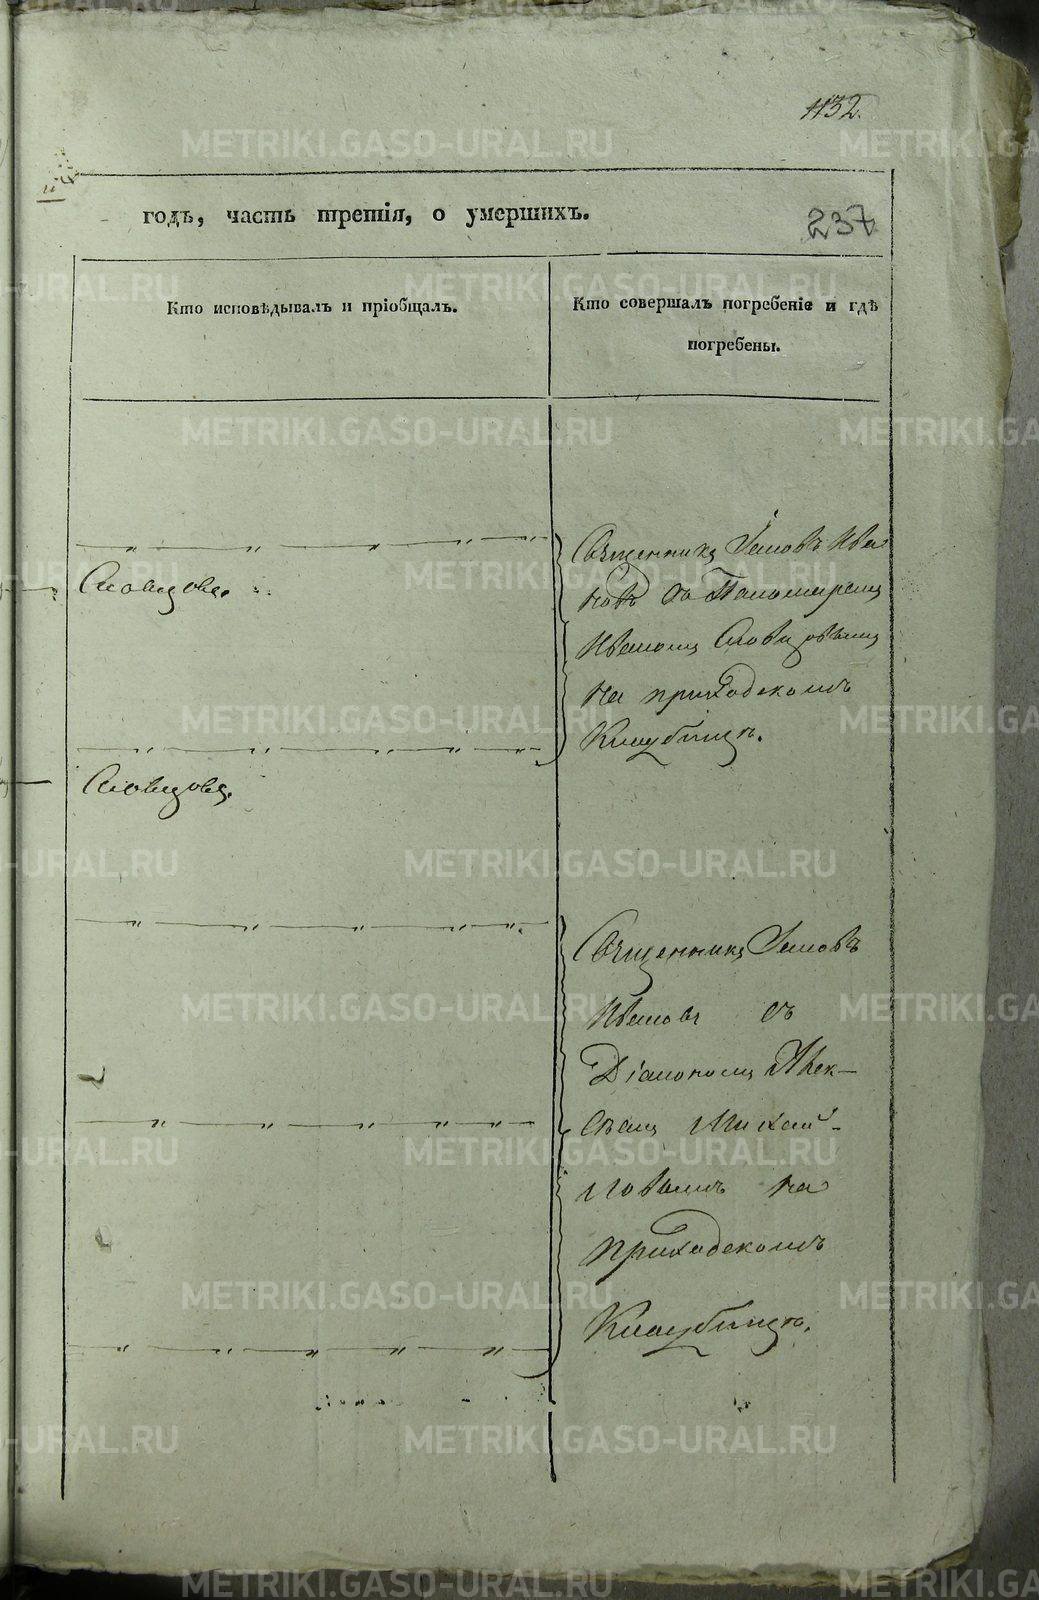 1132.
годъ, часть третія, о умершихъ.
237
Кто исповѣдывалъ и пріобщалъ.
Кто совершалъ погребеніе и гдѣ
погребены.
Священникъ Іаковъ Ива
новъ съ Пономаремъ
Словцова.
Иваномъ Словцовымъ
на приходскомъ
Кладбищѣ.
Словцова.
Священникъ Іаковъ
Ивановъ съ
Діакономъ Алек-
сѣемъ Михай-
ловымъ на
приходскомъ
Кладбищѣ.
METRIKI.GASO-URAL.RU